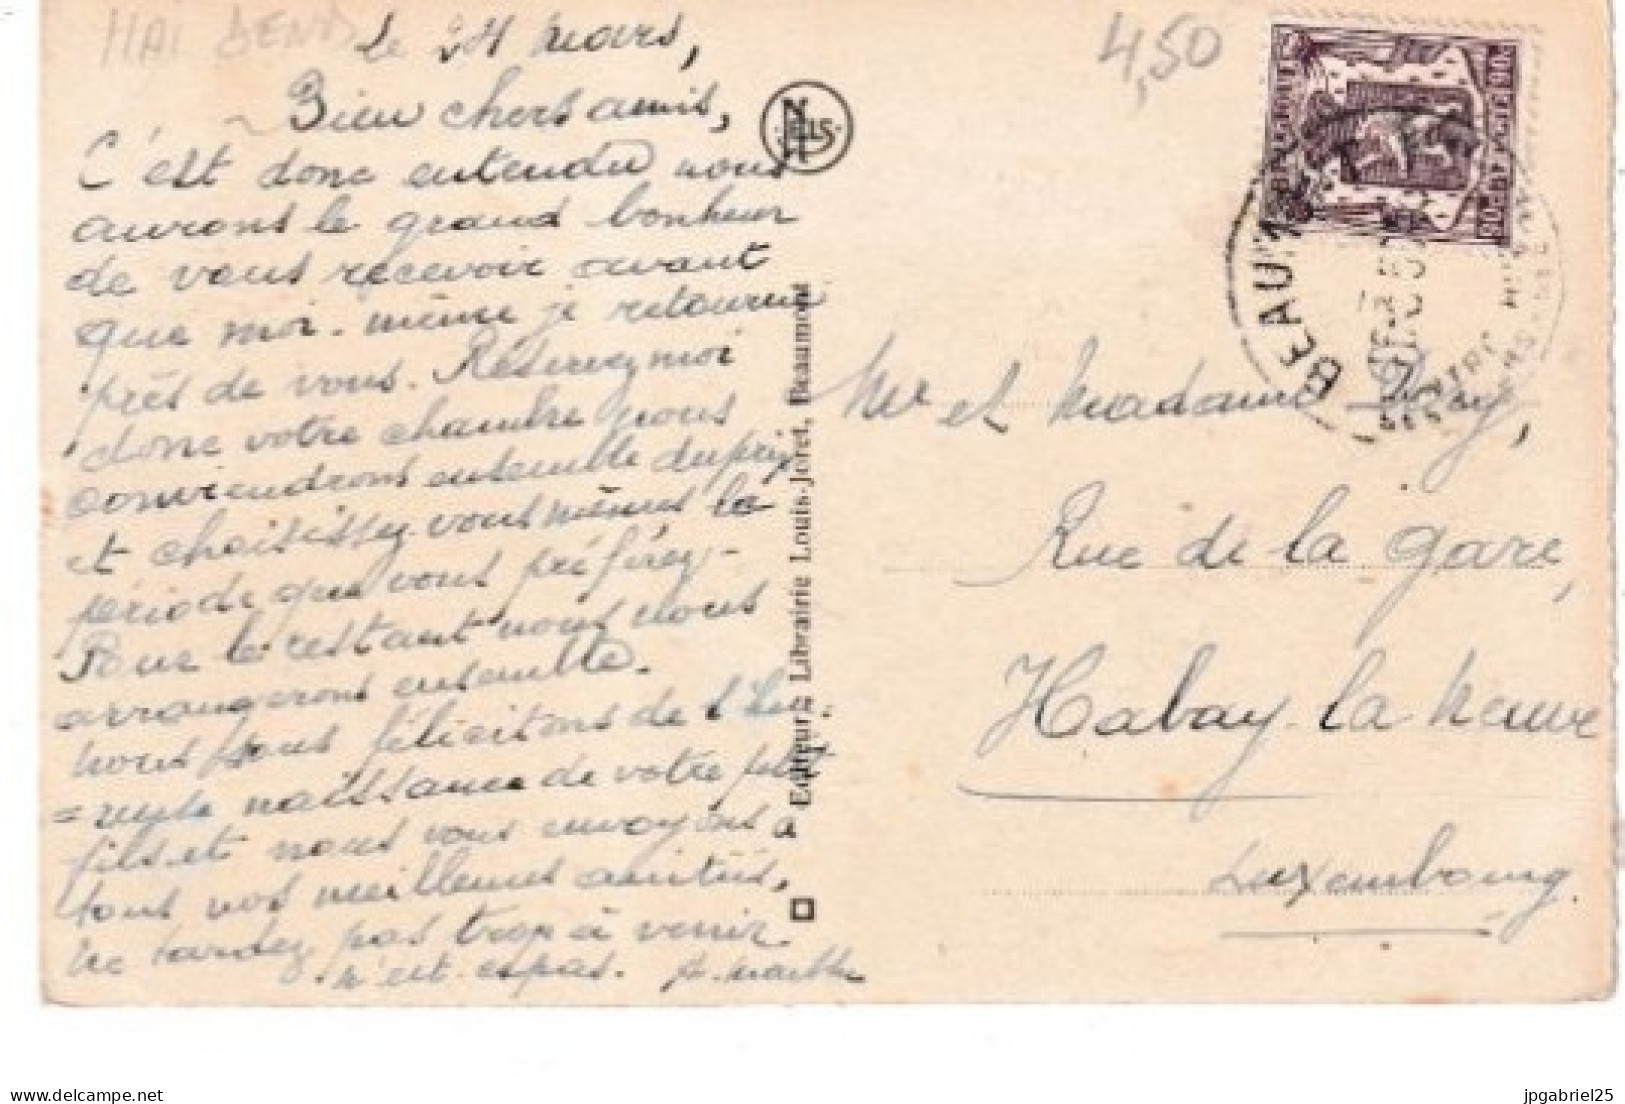 HAI DENS
4,50
le 24 Mars,
Bien chers amis,
C'est donc entendu nous
aurons le grand bonheur
de vous recevoir avant
que moi-même je retourne
près de vous. Réservez moi
donc votre chambre nous
conviendrons ensemble du prix
et choisissez vous mêmes la
période que vous préférez-
Pour le restant nous nous
arrangerons ensemble.
Nous vous félicitons de l'heu-
=reuse naissance de votre petit
fils et nous vous envoyons à
tous nos meilleures amitiés,
Ne tardez pas trop à venir
n'est-ce pas.
NELS
Editeur: Librairie Louis-Joret, Beaumont
BELGIQUE
BELGIE
BEAUM
Mr et Madame
Rue de la Gare,
Habay-la Neuve
Luxembourg.
delcampe.net
jpgabriel25